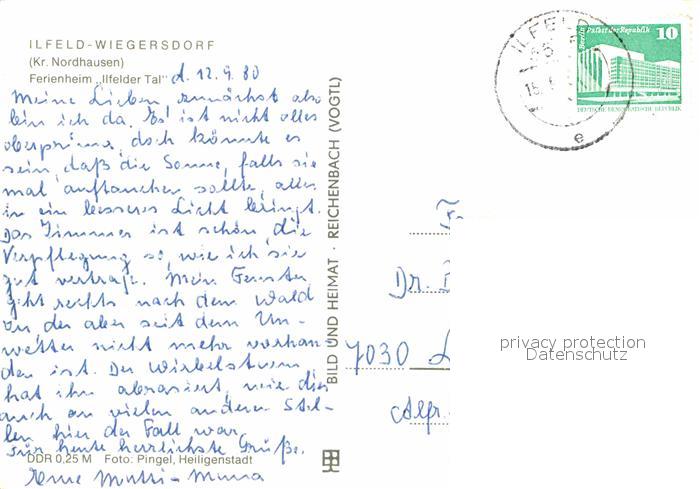 ILFELD-WIEGERSDORF
(Kr. Nordhausen)
Ferienheim „Ilfelder Tal" d. 12.9.80
Meine Lieben, zunächst also
bin ich da. Es ist nicht alles
oberprima, doch könnte es
sein, daß die Sonne, falls sie
mal auftauchen sollte, alles
in ein besseres Licht bringt.
Das Zimmer ist schön, die
Verpflegung so, wie ich sie
gut vertrage. Mein Fenster
geht rechts nach dem Wald
zu, der aber seit dem Un-
wetter nicht mehr vorhan-
den ist. Der Wirbelsturm
hat ihn abrasiert, wie dies
auch an vielen anderen Stel-
len hier der Fall war.
Für heute herzlichste Grüße.
DDR 0,25 M Foto: Pingel, Heiligenstadt
Eure Mutti-
BILD UND HEIMAT · REICHENBACH (VOGTL)
ILFELD
15.
e
Berlin Palast der Republik
10
DEUTSCHE DEMOKRATISCHE REPUBLIK
Dr.
7030 L
Alfr.
privacy protection
Datenschutz